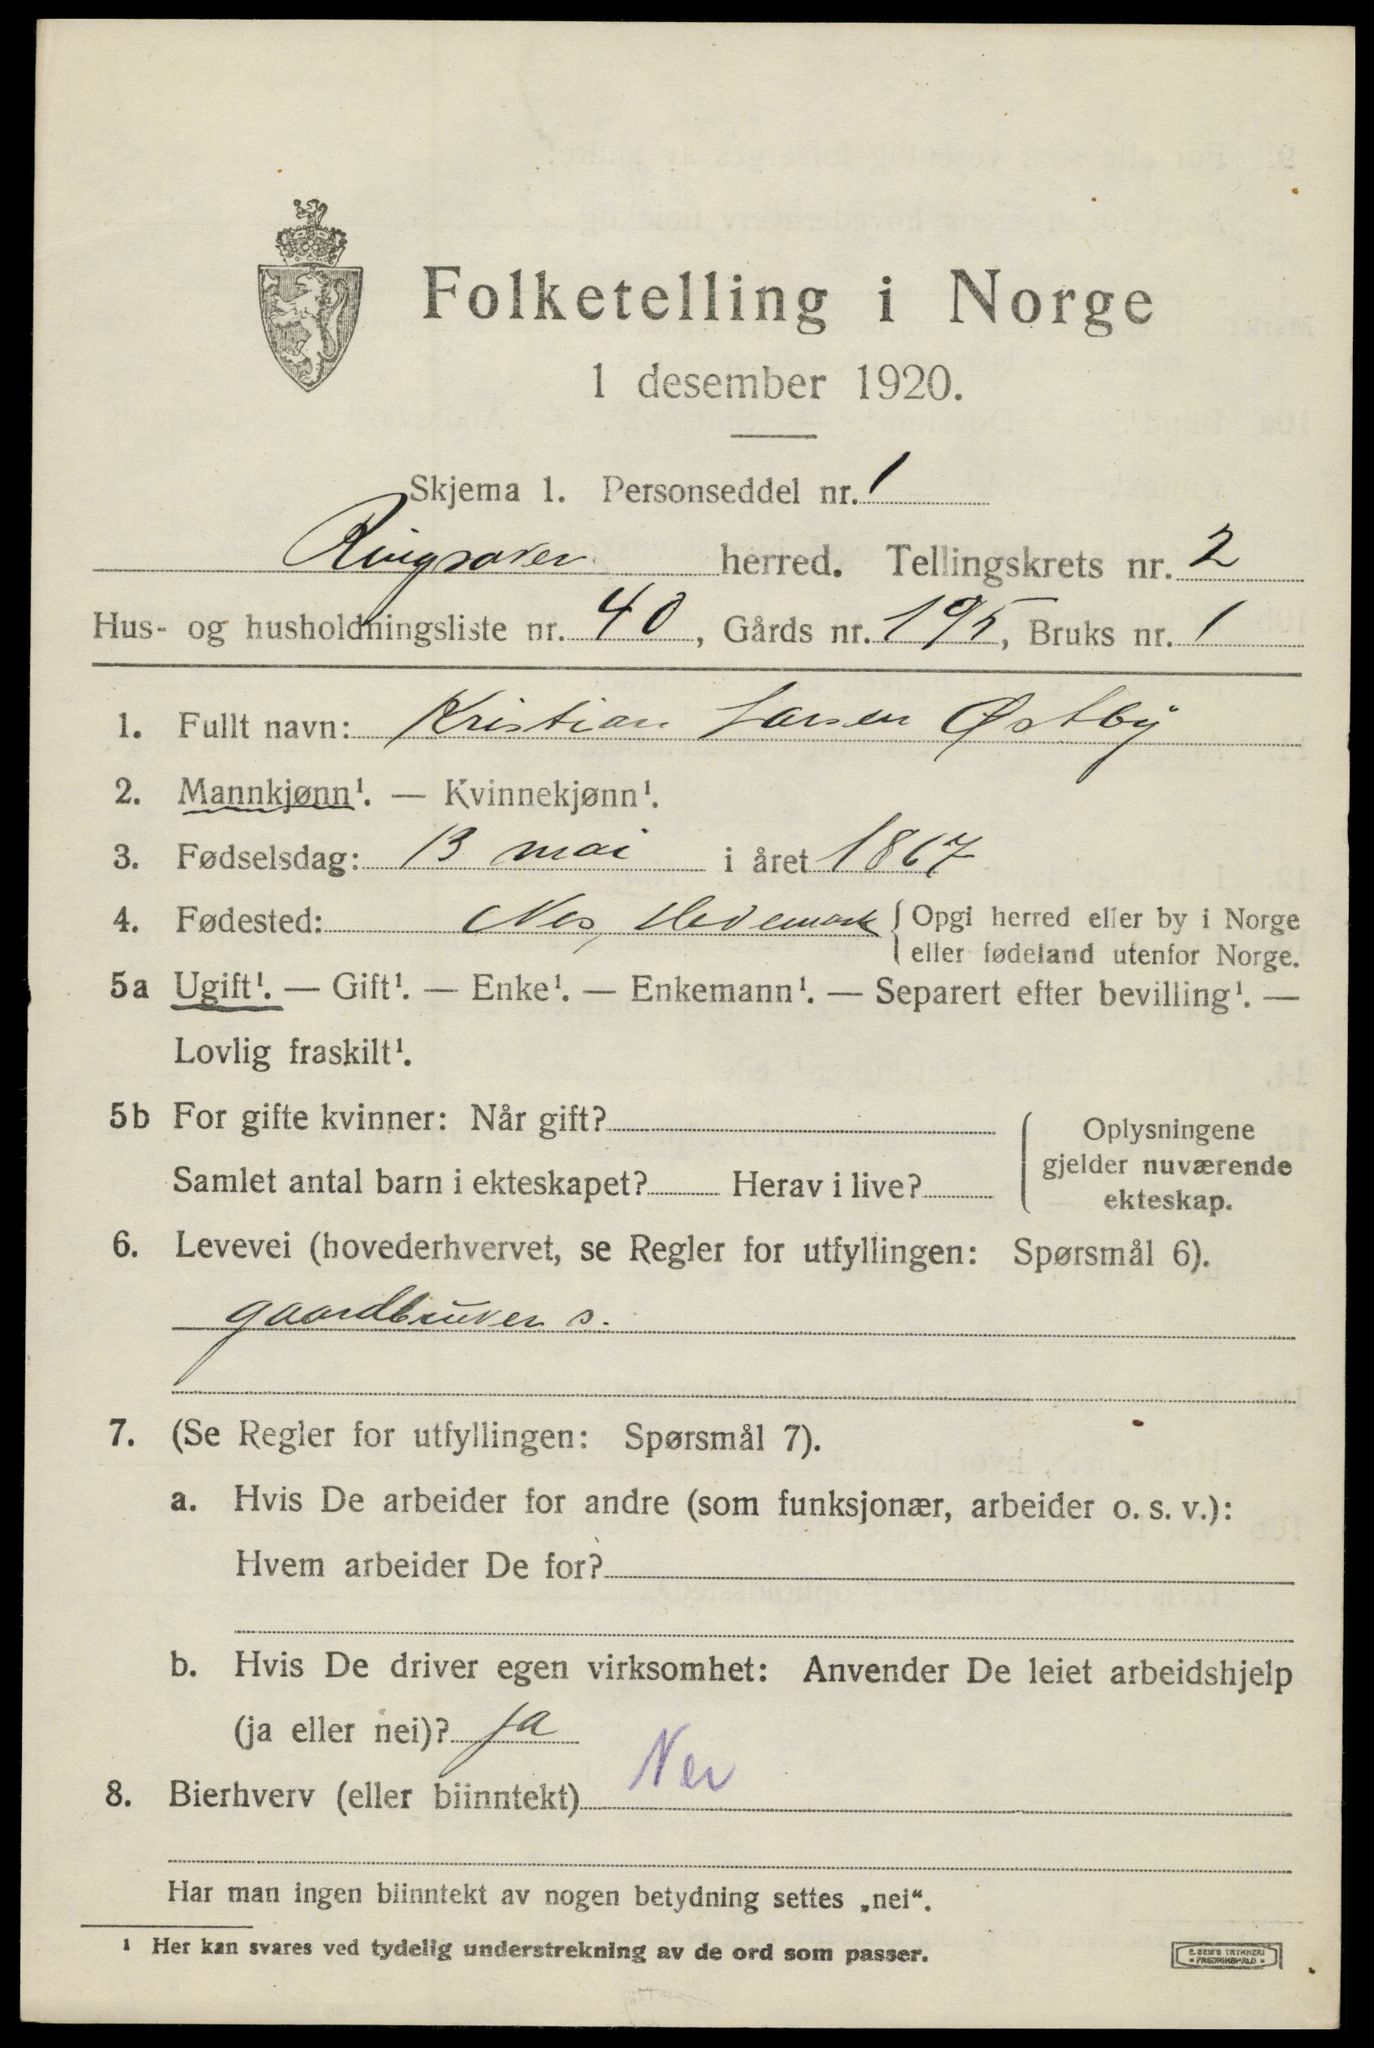 Folketelling i Norge
1 desember 1920.
Skjema 1. Personseddel nr. 1
Ringsaker herred. Tellingskrets nr. 2
Hus- og husholdningsliste nr. 40, Gårds nr. 195, Bruks nr. 1
1. Fullt navn: Kristian Larsen Østby
2. Mannkjønn¹. — Kvinnekjønn¹.
3. Fødselsdag: 13 mai i året 1867
4. Fødested: Nes, Hedemark { Opgi herred eller by i Norge
eller fødeland utenfor Norge.
5a Ugift¹. — Gift¹. — Enke¹. — Enkemann¹. — Separert efter bevilling¹. —
Lovlig fraskilt¹.
5b For gifte kvinner: Når gift?
Samlet antal barn i ekteskapet? Herav i live?
Oplysningene
gjelder nuværende
ekteskap.
6. Levevei (hovederhvervet, se Regler for utfyllingen: Spørsmål 6).
gaardbruker s.
7. (Se Regler for utfyllingen: Spørsmål 7).
a. Hvis De arbeider for andre (som funksjonær, arbeider o. s. v.):
Hvem arbeider De for?
b. Hvis De driver egen virksomhet: Anvender De leiet arbeidshjelp
(ja eller nei)? ja
8. Bierhverv (eller biinntekt) Nei
Har man ingen biinntekt av nogen betydning settes „nei“.
¹ Her kan svares ved tydelig understrekning av de ord som passer.
E. SEM'S TRYKKERI
• FREDRIKSHALD •